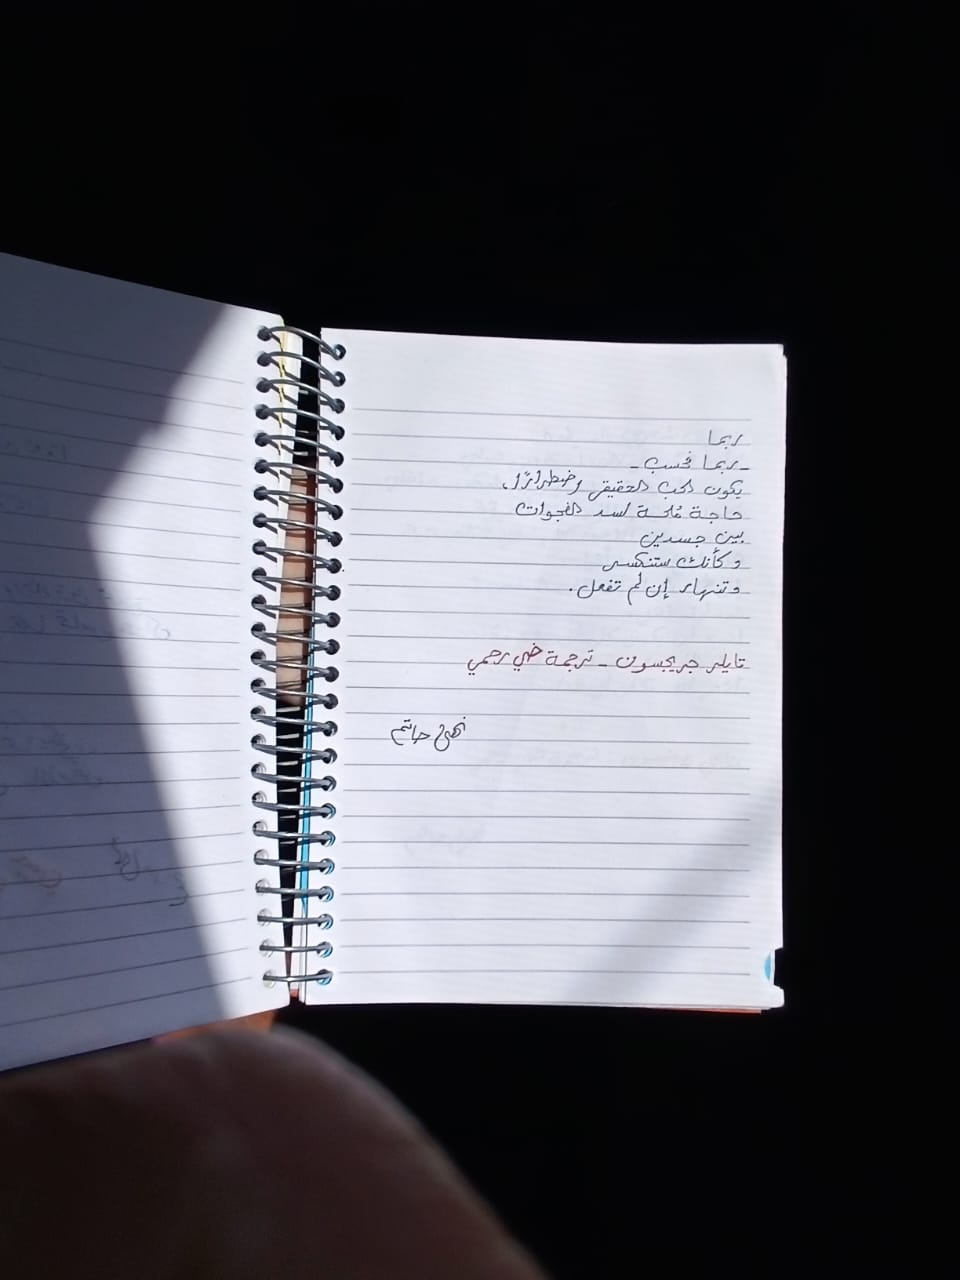 ربما
ـ ربما فحسب ـ
يكون الحب الحقيقي اضطرارًا،
حاجة مُلحة لسد الفجوات
بين جسدين
وكأنك ستنكسر
وتنهار إن لم تفعل.
تايلر جريجسون ـ ترجمة ضي رحمي
نهى حاتم